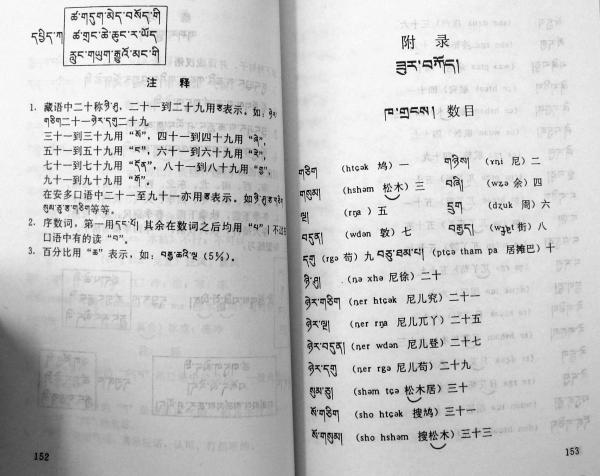 ཚ་གདུག་མེད་བསོད་གི
དཔྱིད་ཀ ཚ་གྲང་ཚེ་ཆུང་ར་ཡོད
རླུང་གཡུག་རྒྱུའི་མང་གི
注 释
1. 藏语中二十称ཉི་ཤུ, 二十一到二十九用ཙ表示。如:
གཅིག二十一 二十九
三十一到三十九用“སོ”, 四十一到四十九用“ཞེ”,
五十一到五十九用“ང”, 六十一到六十九用“རེ”,
七十一到七十九用“དོན”, 八十一到八十九用“གྱ”,
九十一到九十九用“གོ”。
在安多口语中二十一至九十一亦用ཙ表示。如
等等。
2. 序数词, 第一用དང་པོ། 其余在数词之后均用“པ”
口语中有的读“བ”。
3. 百分比用“ཆ”表示, 如: བརྒྱ་ཆའི་ལྔ (5%)。
152
附 录
ཟུར་བཀོད།
ཁ་གྲངས། 数目
གཅིག (htɕək 鸠) 一 གཉིས། (ɤni 尼) 二
གསུམ། (hshəm 松木) 三 བཞི། (wzə 余) 四
ལྔ། (rŋa ) 五 དྲུག (dʐuk 周) 六
བདུན། (wdən 敦) 七 བརྒྱད། (wɟɛt 街) 八
དགུ (rgə 苟) 九 བཅུ་ཐམ་པ། (ptɕə tham pa 居摊巴) 十
ཉི་ཤུ། (nə xhə 尼徐) 二十
ཉེར་གཅིག (ner htɕək 尼儿究) 二十一
ཉེར་ལྔ། (ner rŋa 尼儿兀丫) 二十五
ཉེར་བདུན། (ner wdən 尼儿登) 二十七
ཉེར་དགུ (ner rgə 尼儿苟) 二十九
སུམ་ཅུ། (shəm tɕə 松木居) 三十
སོ་གཅིག (sho htɕək 搜鸠) 三十一
སོ་གསུམ། (sho hshəm 搜松木) 三十三
153